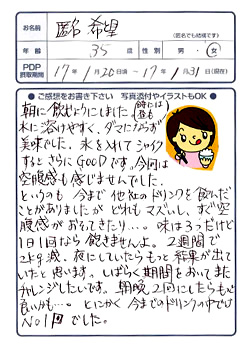 お名前 匿名 希望
(匿名でも結構です)
年齢 35歳 性別 男・女
PDP摂取期間 17年1月20日頃〜17年1月31日(現在)
●ご感想をお書き下さい 写真添付やイラストもOK●
朝に飲むようにしました(時には昼も)
水に溶けやすく、ダマにならず
美味でした。氷を入れてシェイク
するとさらにGOODです。今回は
空腹感も感じませんでした。
というのも 今まで他社のドリンクを飲んだ
ことがありましたが どれもマズいし、すぐ空
腹感がおそってきたり…。味は3つだけど
1日1回なら飽きませんよ。2週間で
2kg減、夜にしていたらもっと結果が出て
いたと思います。しばらく期間をおいてまた
チャレンジしたいです。朝晩2回にしたらもっと
良いかも…。とにかく今までのドリンクの中では
No1 でした。